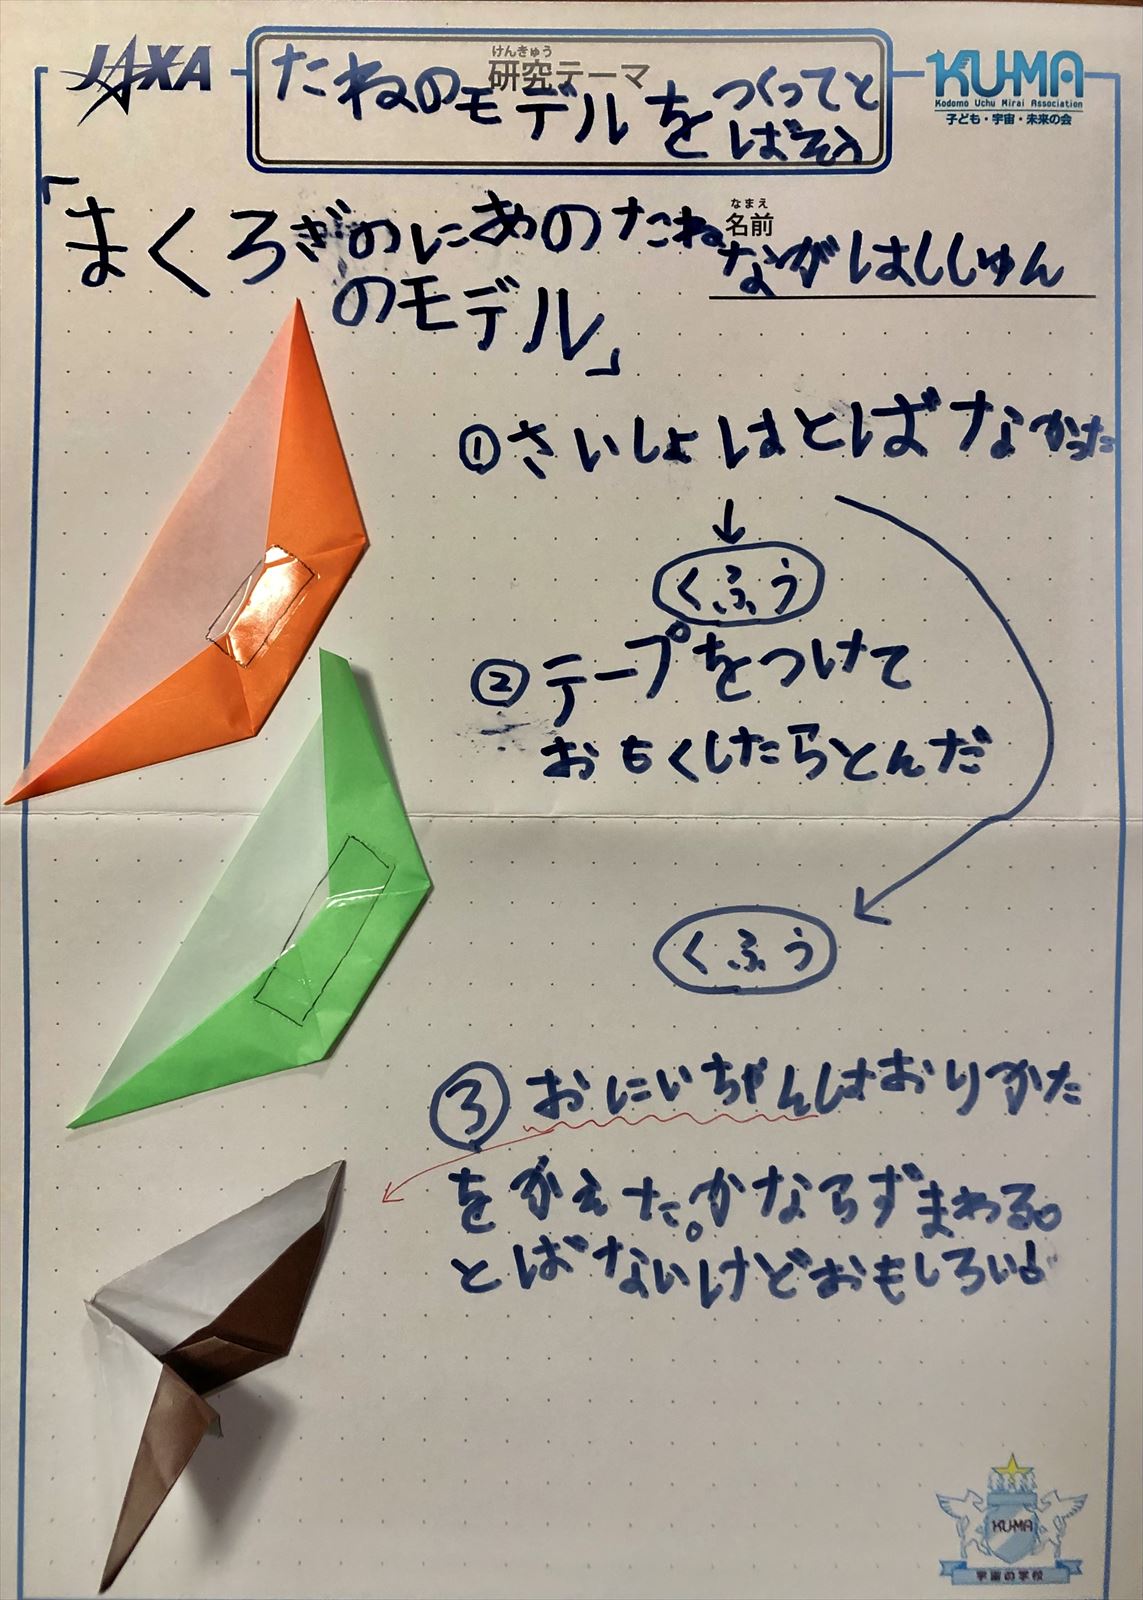 JAXA
けんきゅう
研究テーマ
たねのモデルをつくってと
ばそう
KU-MA
Kodomo Uchu Mirai Association
子ども・宇宙・未来の会
「まくろぎのにあのたね
のモデル」
なまえ
名前
ながはししゅん
①さいしょはとばなかった
↓
くふう
②テープをつけて
おもくしたらとんだ
くふう
③おにいちゃんはおりかた
をかえた。かならずまわる。
とばないけどおもしろい
KU-MA
宇宙の学校